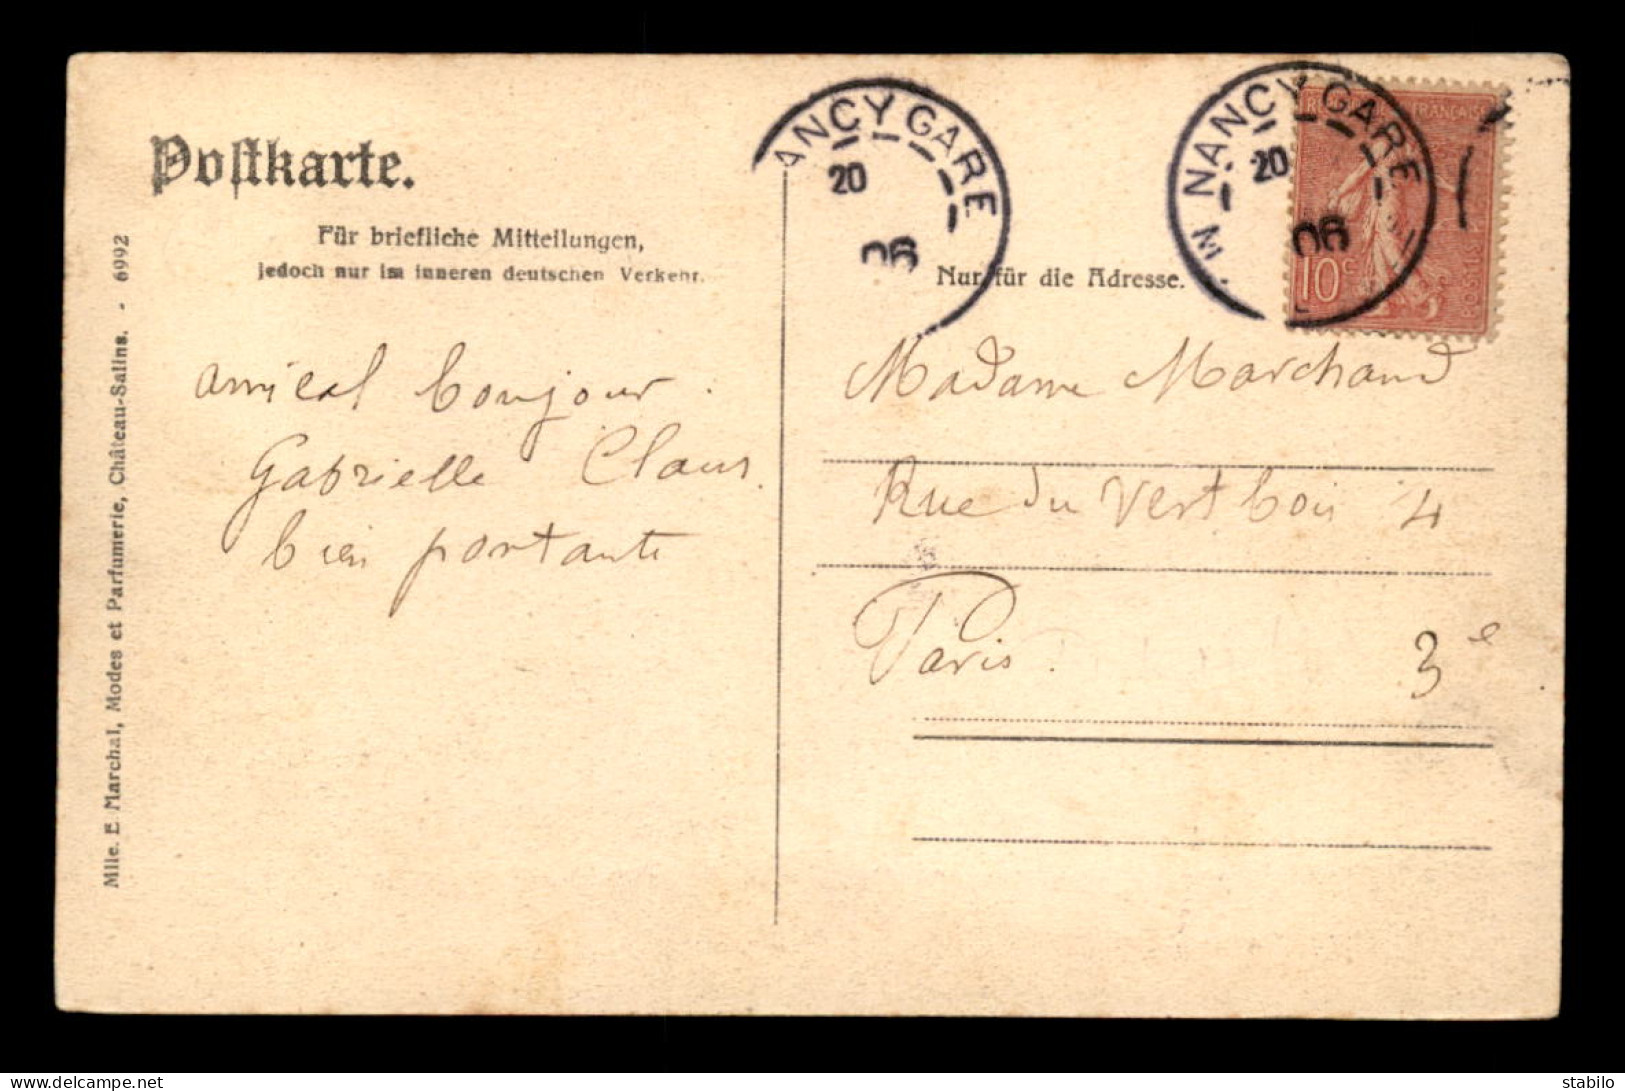 Postkarte.
Für briefliche Mitteilungen,
jedoch nur im inneren deutschen Verkehr.
Nur für die Adresse.
NANCY GARE
20
06
NANCY GARE
20
06
FRANÇAISE
10 c
POSTES
amical bonjour.
Gabrielle Claus.
bien portante
Madame Marchand
Rue du Vertbois 4
Paris. 3e
Mlle. E. Marchal, Modes et Parfumerie, Château-Salins. - 6992
delcampe.net
stabilo